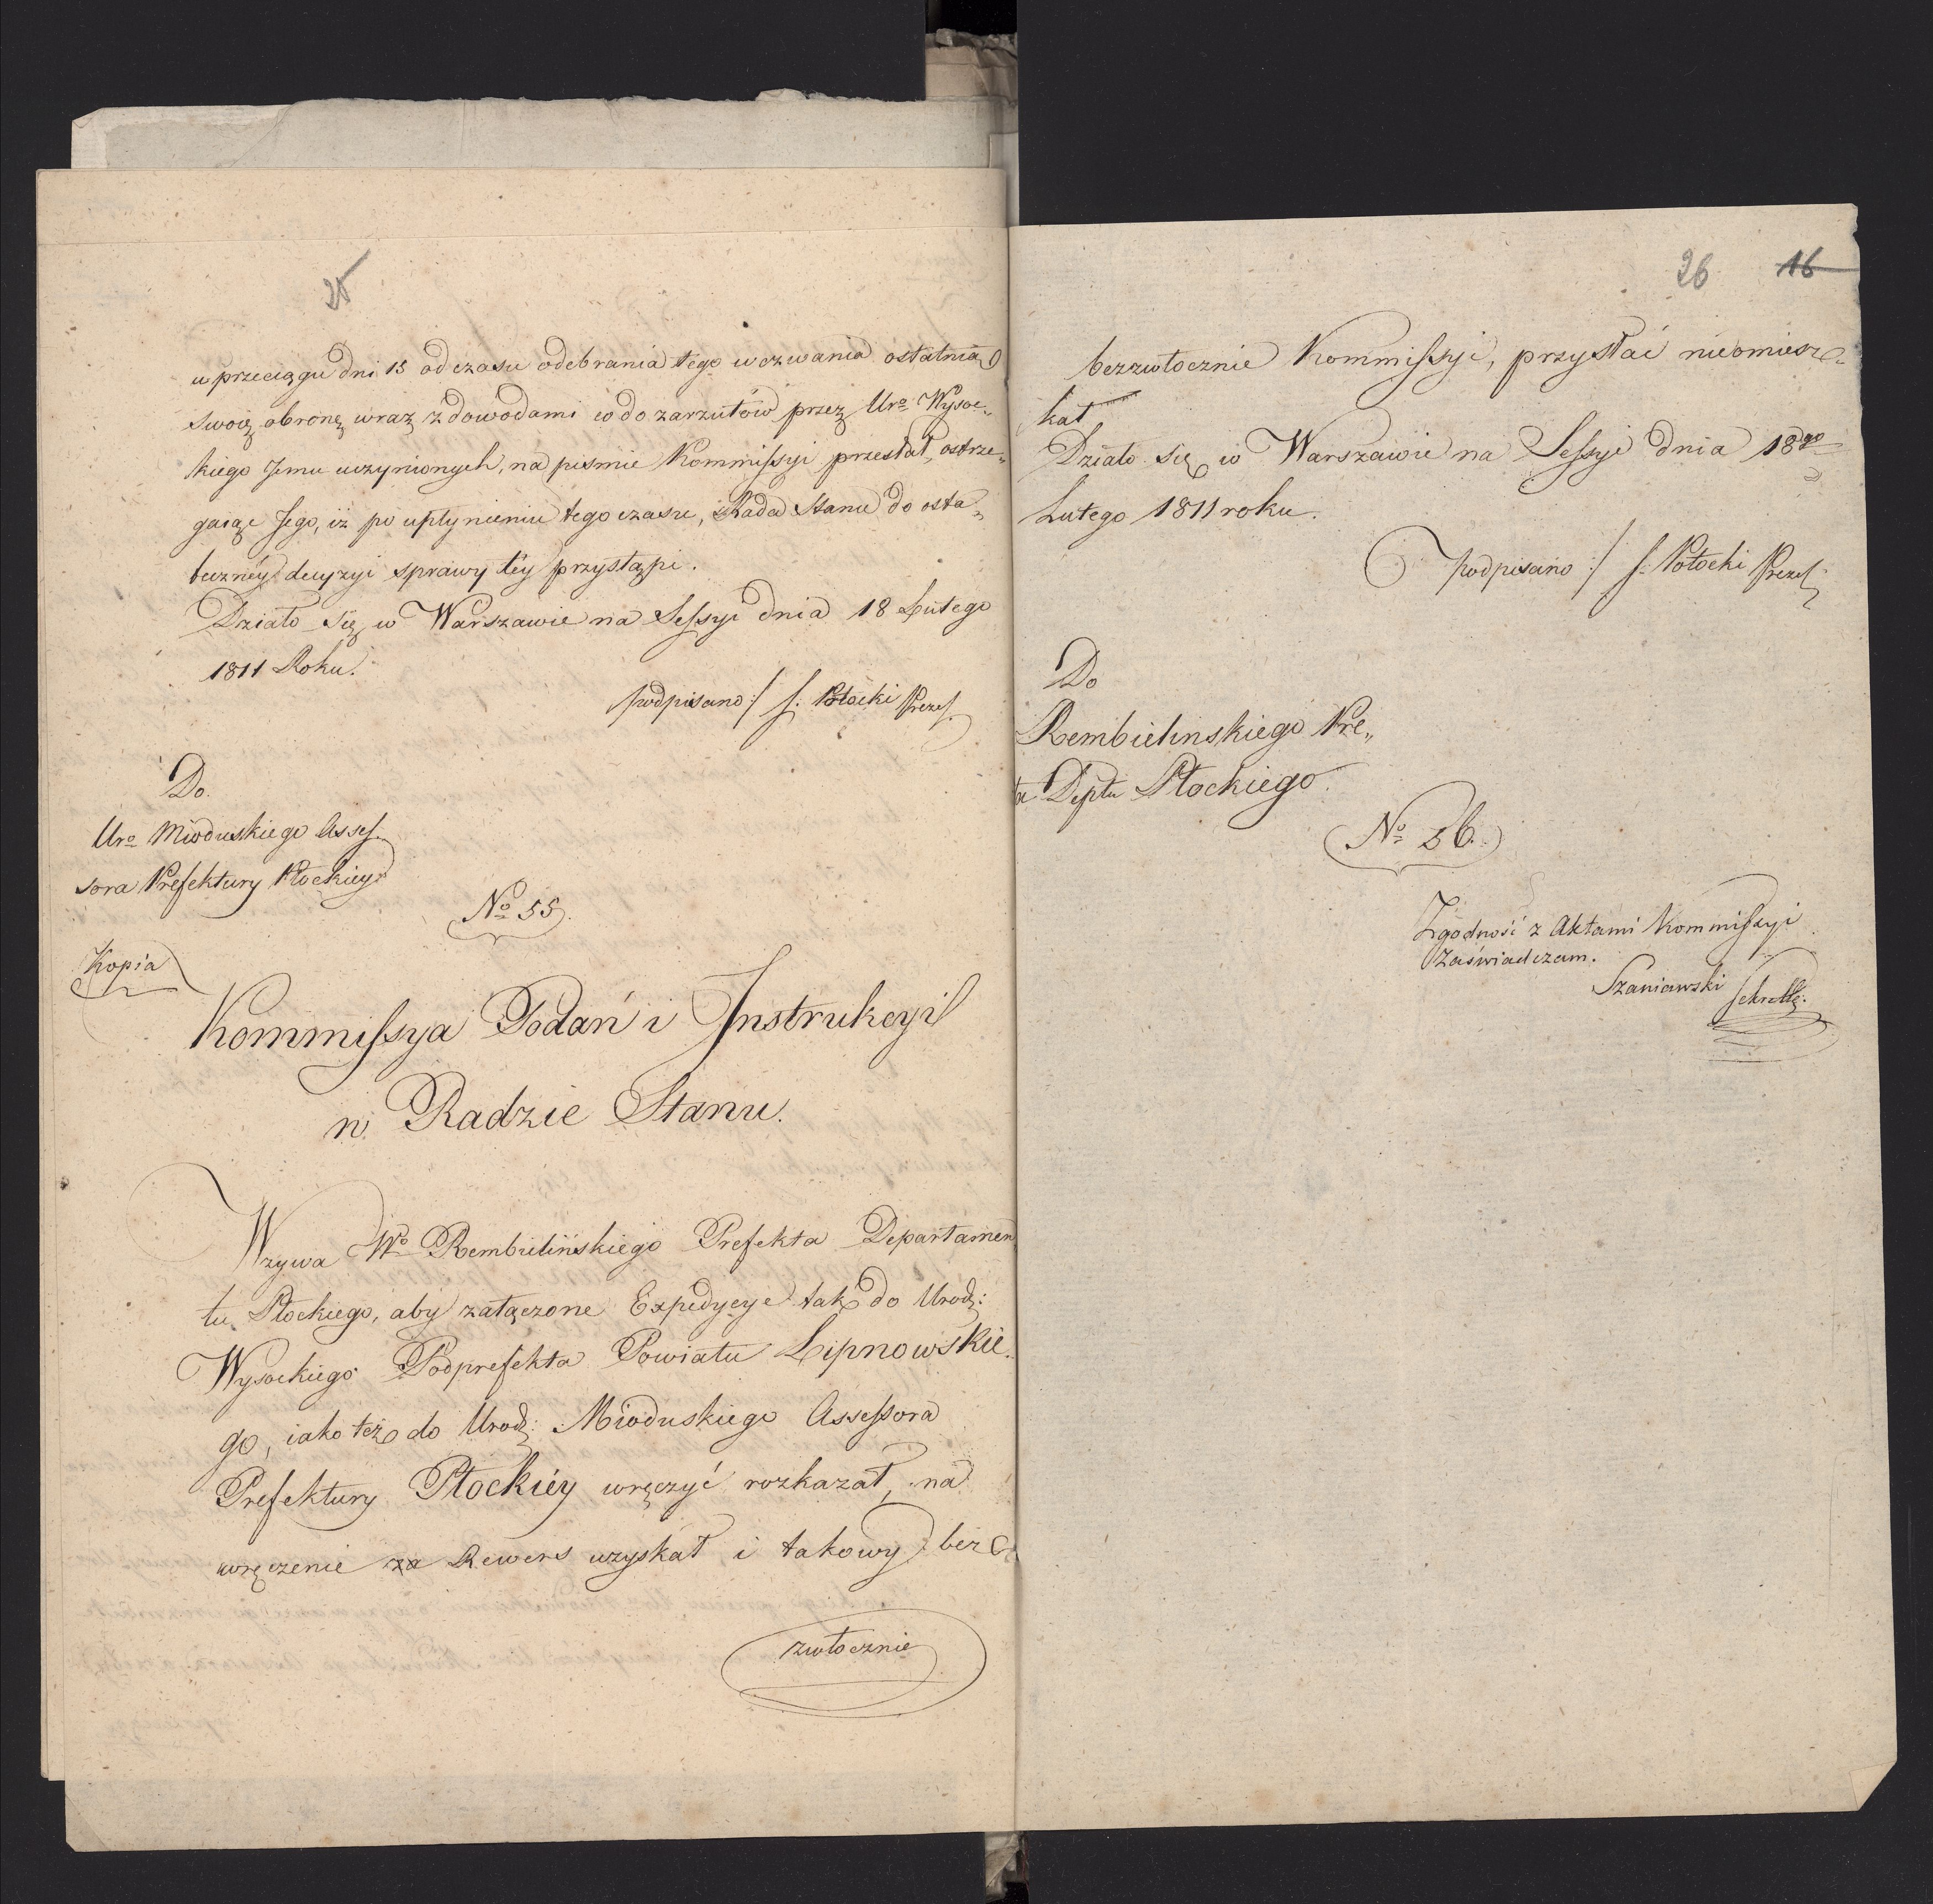 25
w przeciągu dni 15 od czasu odebrania tego wezwania ostatnią
swoię obronę wraz z dowodami co do zarzutów przez Uro Wysoc„
kiego Jemu uczynionych, na pismie Kommissyi przesłał, ostrze„
gaiąc Jego, iż po upłynieniu tego czasu, Rada Stanu do osta„
teczney decyzyi sprawy tey przystąpi.
Działo się w Warszawie na Sessyi dnia 18 Lutego
1811 Roku.
podpisano :/ S. Potocki Prezes
Do
Uro Mioduskiego Asses„
sora Prefektury Płockiey
No 55.
Kopia
Kommissya Podań i Instrukcyi
w Radzie Stanu.
Wzywa Wo Rembielińskiego Prefekta Departamen
tu Płockiego, aby załączone Expedycye tak do Urodz:
Wysockiego Podprefekta Powiatu Lipnowskie„
go, iako też do Urodz: Mioduskiego Assessora
Prefektury Płockiéy wręczyć rozkazał, na
wręczenie za Rewers uzyskał i takowy bez„
zwłocznie
26 16
bezzwłocznie Kommissyi, przysłać nieomiesz„
kał
Działo się w Warszawie na Sessyi dnia 18go
Lutego 1811 roku.
podpisano :/ S. Potocki Prezes
Do
Rembielinskiego Pre„
ta Deptu Płockiego.
No 56.
Zgodność z Aktami Kommissyi
Zaświadczam.
Szaniawski Sekrettz.